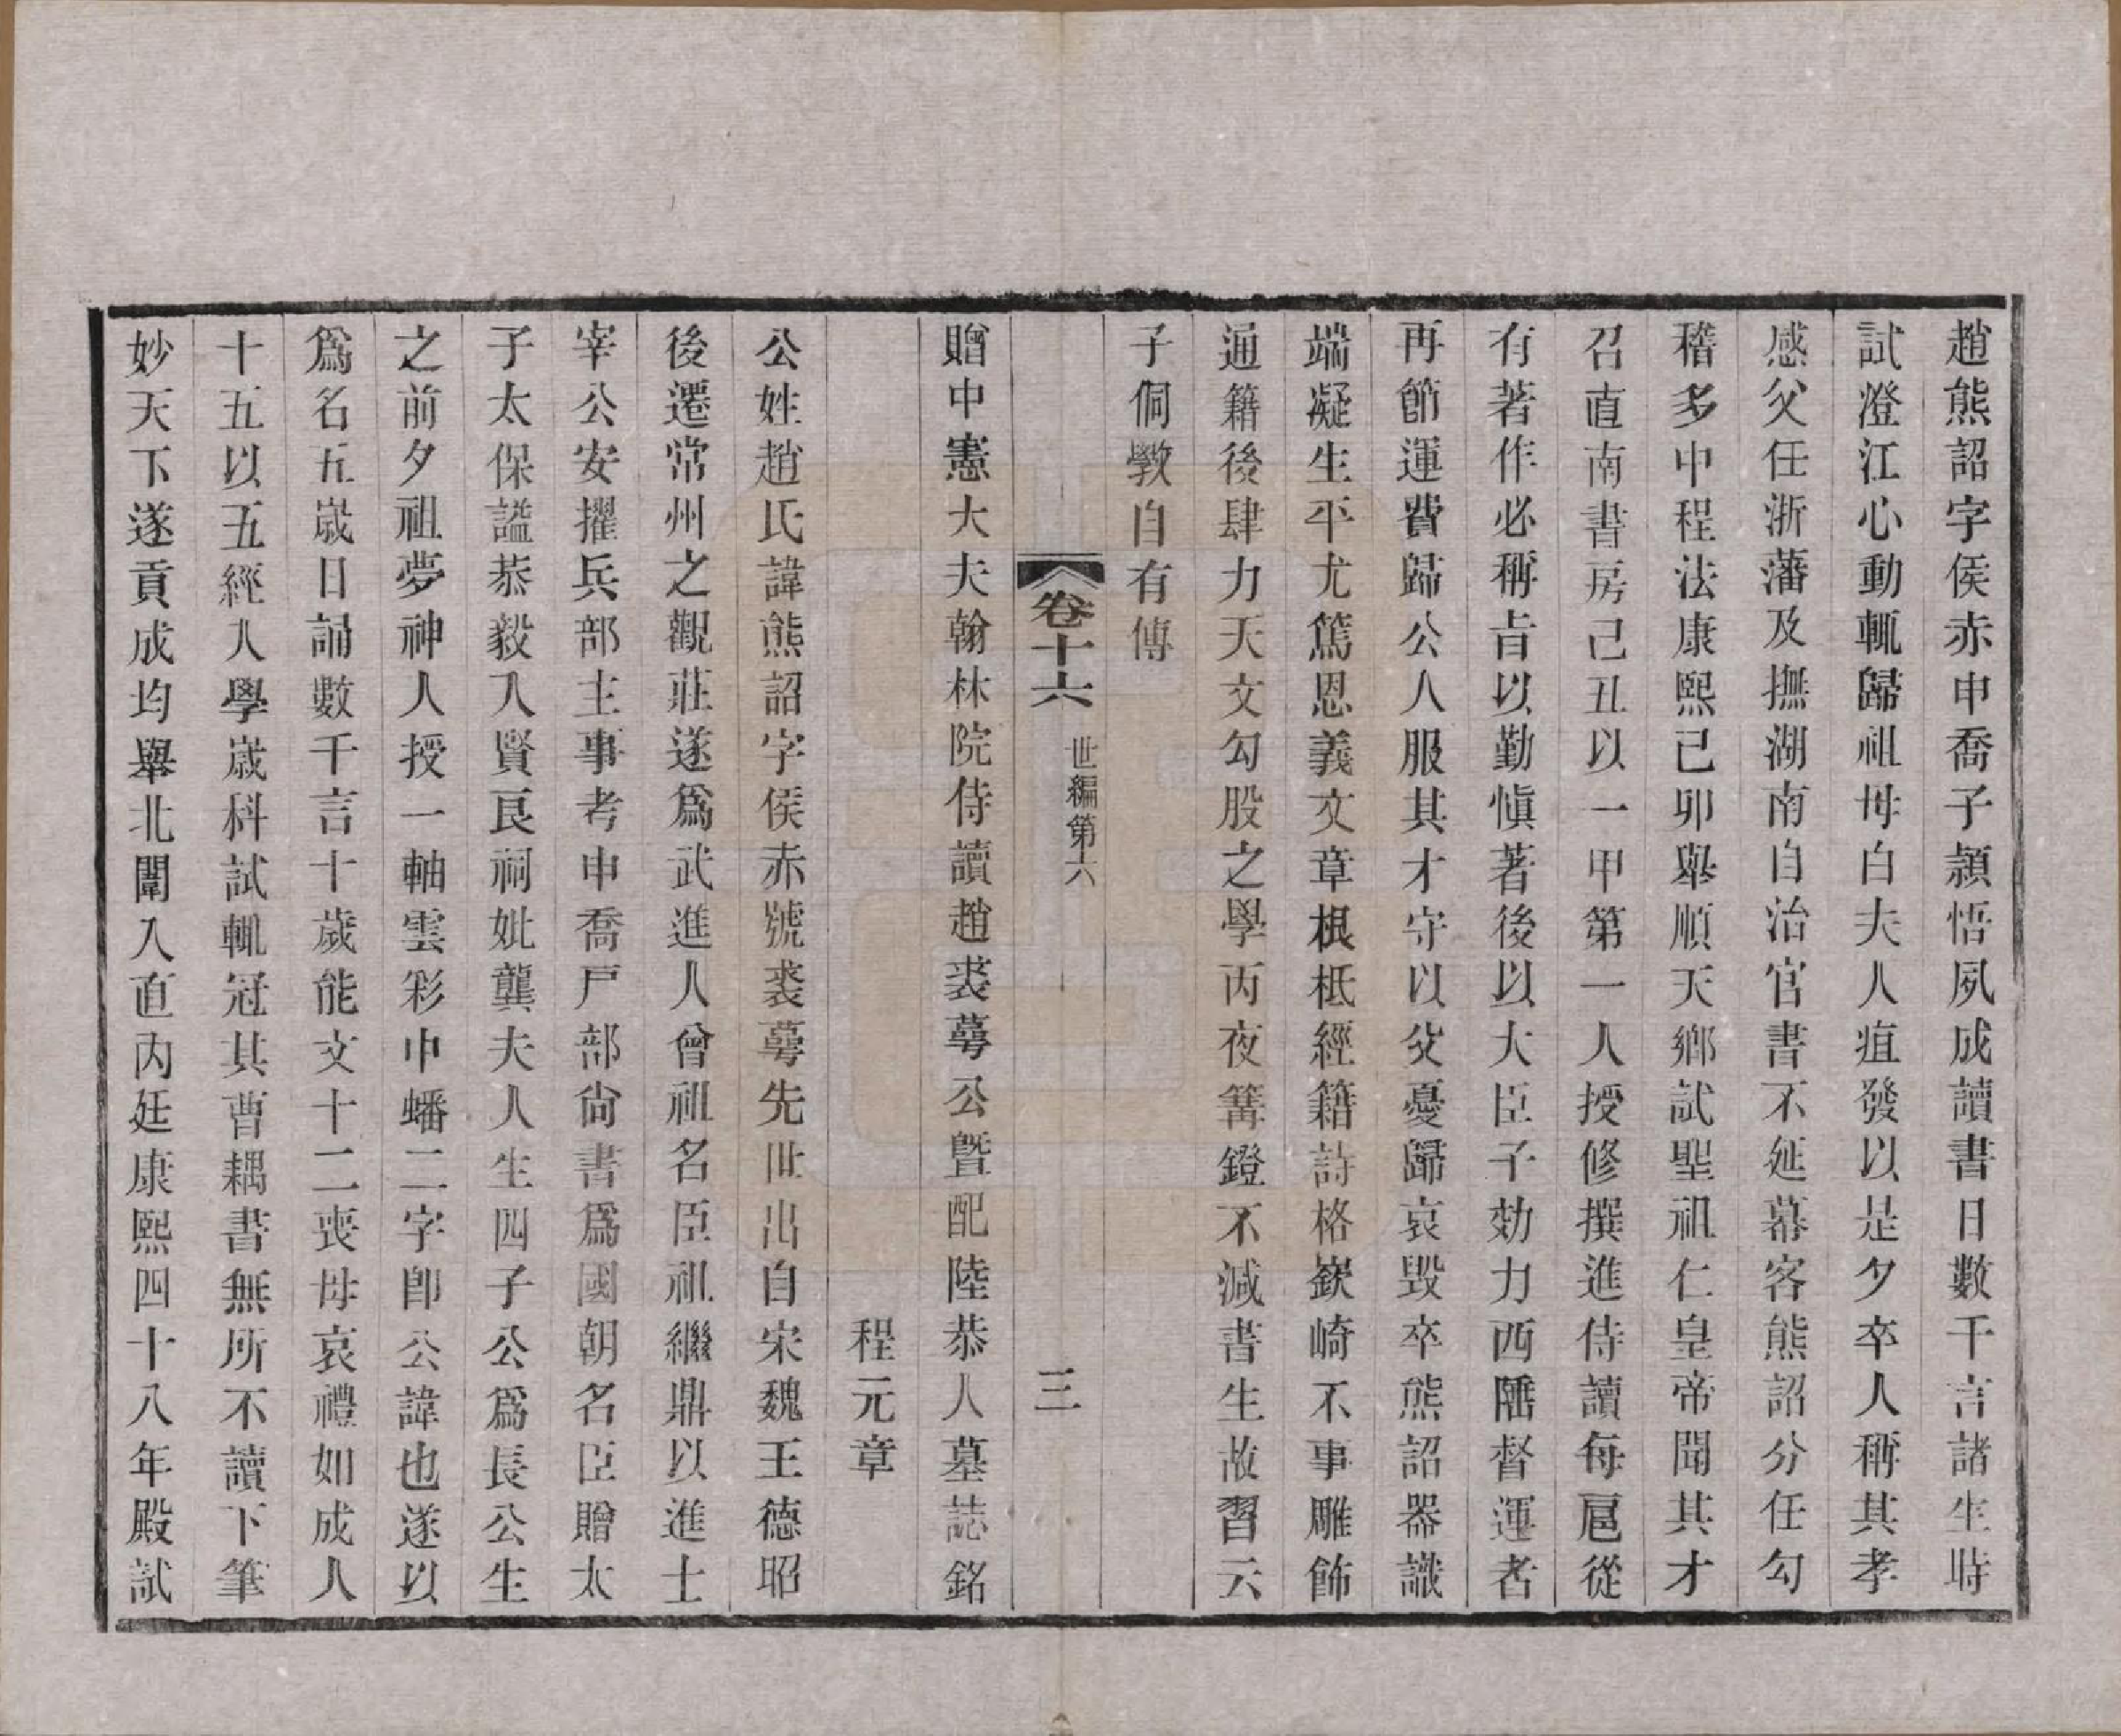 趙熊詔字侯赤申喬子潁悟夙成讀書日數千言諸生時
試澄江心動輒歸祖母白夫人疽發以是夕卒人稱其孝
感父任浙藩及撫湖南自治官書不延幕客熊詔分任勾
稽多中程法康熙己卯舉順天鄉試聖祖仁皇帝聞其才
召直南書房己丑以一甲第一人授修撰進侍讀每扈從
有著作必稱旨以勤慎著後以大臣子効力西陲督運者
再節運費歸公人服其才守以父憂歸哀毀卒熊詔器識
端凝生平尤篤恩義文章根柢經籍詩格嶔崎不事雕飾
通籍後肆力天文勾股之學丙夜篝鐙不減書生故習云
子侗斆自有傳
卷十六 世編第六 三
贈中憲大夫翰林院侍讀趙裘萼公曁配陸恭人墓誌銘
程元章
公姓趙氏諱熊詔字侯赤號裘萼先世出自宋魏王德昭
後遷常州之觀莊遂爲武進人曾祖名臣祖繼鼎以進士
宰公安擢兵部主事考申喬戸部尙書爲國朝名臣贈太
子太保謚恭毅入賢良祠妣龔夫人生四子公爲長公生
之前夕祖夢神人授一軸雲彩中蟠二字卽公諱也遂以
爲名五歲日誦數千言十歲能文十二喪母哀禮如成人
十五以五經入學歲科試輒冠其曹耦書無所不讀下筆
妙天下遂貢成均舉北闈入直內廷康熙四十八年殿試